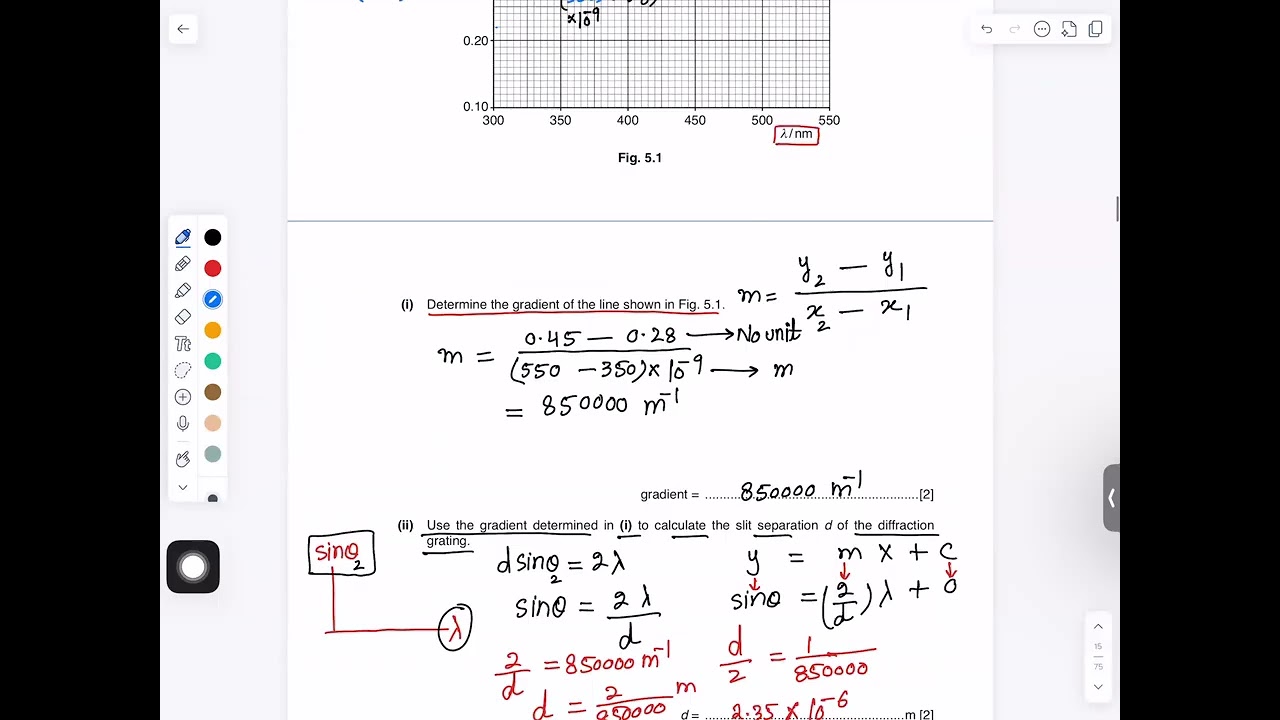 ×10⁻⁹
0.20
0.10
300 350 400 450 500 550
λ/nm
Fig. 5.1
(i) Determine the gradient of the line shown in Fig. 5.1.
m = y₂ − y₁
x₂ − x₁
m = 0.45 − 0.28 → No unit
(550 − 350) × 10⁻⁹ → m
= 850000 m⁻¹
gradient = 850000 m⁻¹ [2]
(ii) Use the gradient determined in (i) to calculate the slit separation d of the diffraction
grating.
sinθ₂
λ
d sinθ₂ = 2λ
y = m x + c
sinθ = 2λ
d
sinθ = (2/d) λ + 0
2/d = 850000 m⁻¹
d/2 = 1/850000
d = 2/850000 m
d = 2.35 × 10⁻⁶ m [2]
Tt
15
75